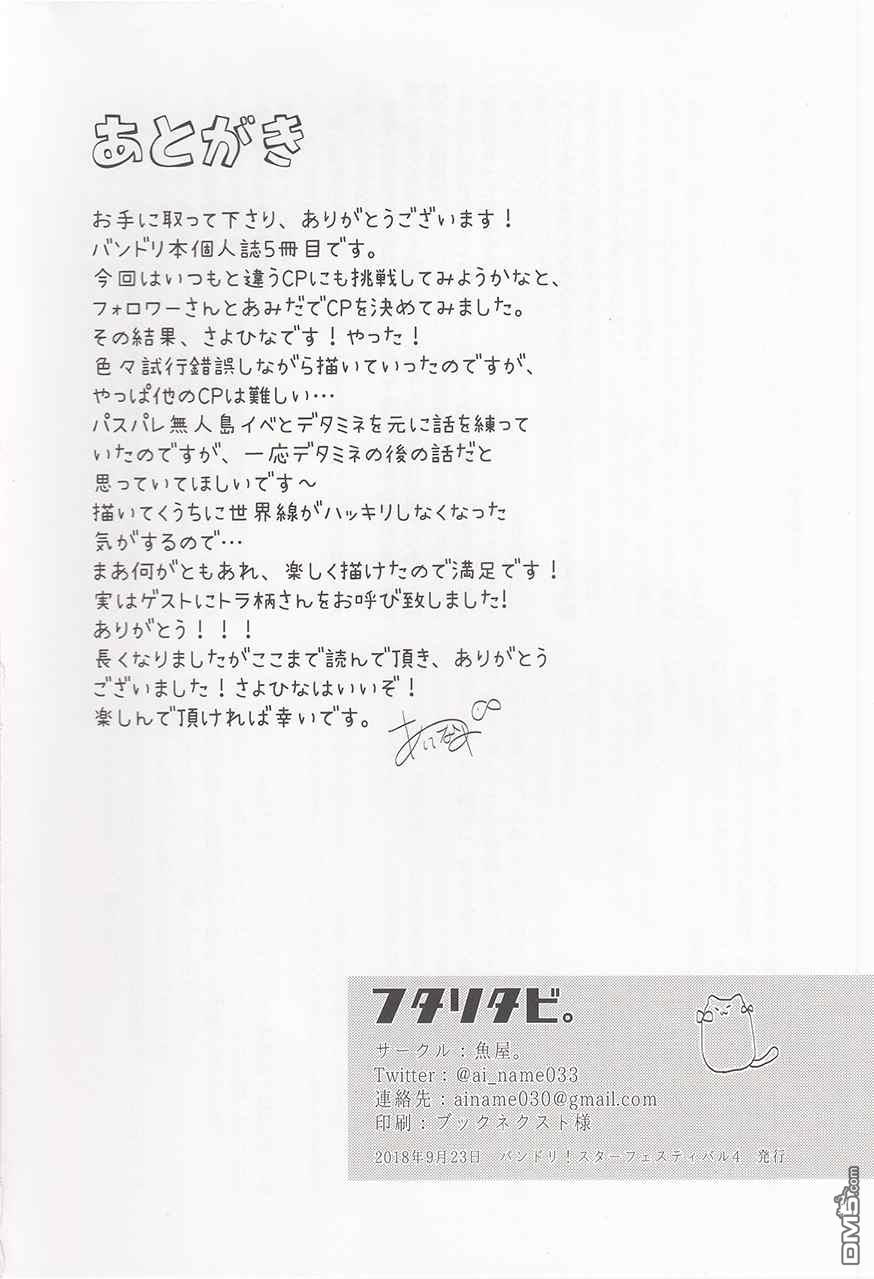 あとがき
お手に取って下さり、ありがとうございます！
バンドリ本個人誌5冊目です。
今回はいつもと違うCPにも挑戦してみようかなと、
フォロワーさんとあみだでCPを決めてみました。
その結果、さよひなです！やった！
色々試行錯誤しながら描いていったのですが、
やっぱ他のCPは難しい…
パスパレ無人島イベとデタミネを元に話を練って
いたのですが、一応デタミネの後の話だと
思っていてほしいです～
描いてくうちに世界線がハッキリしなくなった
気がするので…
まあ何がともあれ、楽しく描けたので満足です！
実はゲストにトラ柄さんをお呼び致しました!
ありがとう！！！
長くなりましたがここまで読んで頂き、ありがとう
ございました！さよひなはいいぞ！
楽しんで頂ければ幸いです。
フタリタビ。
サークル：魚屋。
Twitter：@ai_name033
連絡先：ainame030@gmail.com
印刷：ブックネクスト様
2018年9月23日　バンドリ！スターフェスティバル4　発行
DM5.com